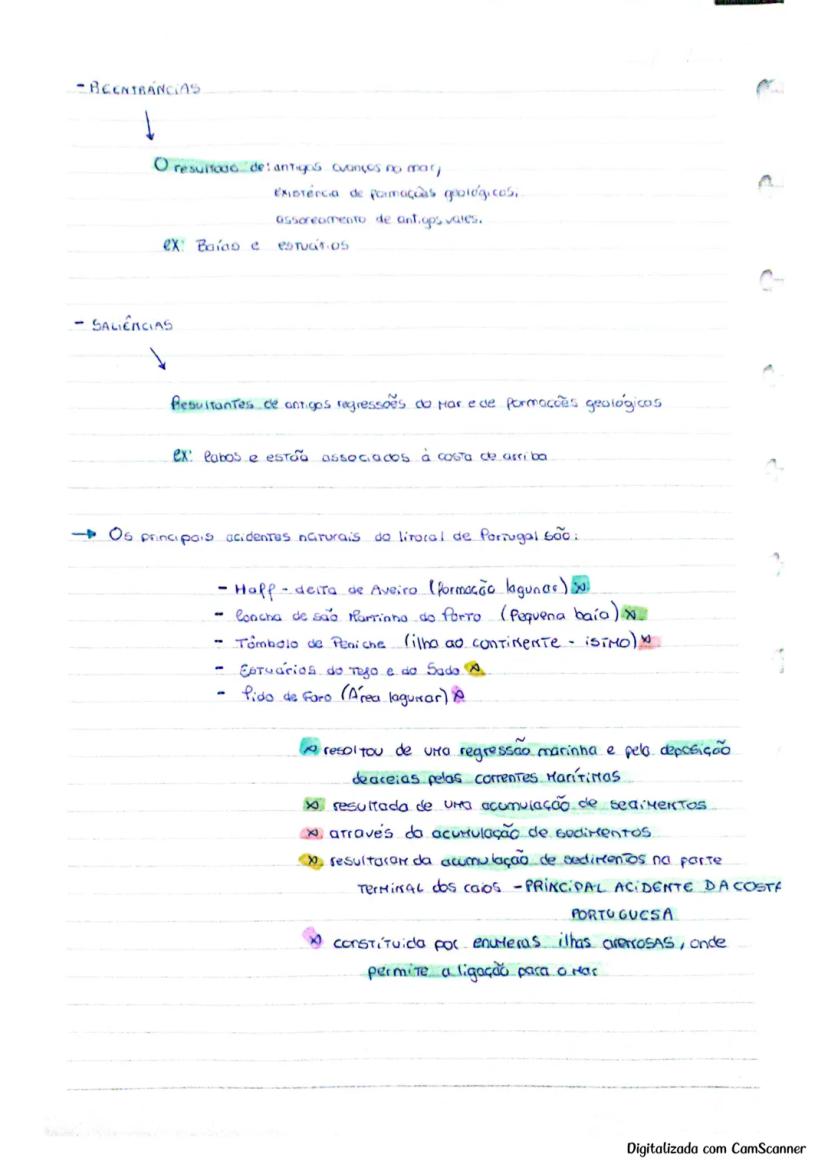 - REENTRÂNCIAS
O resultado de: antigos avanços no mar,
existência de formações geológicas,
assoreamento de antigos vales.
ex: Baías e estuários
- SALIÊNCIAS
Resultantes de antigos regressões do Mar e de formações geológicos
ex: Cabos e estão associados à costa de arriba
→ Os principais acidentes naturais do litoral de Portugal são:
- Haff - delta de Aveiro (formação lagunar)
- Concha de são Martinho do Porto (Pequena baía)
- Tômbolo de Peniche (ilha ao CONTINENTE - iSTMO)
- Estuários do Tejo e do Sado
- Ria de Faro (Área lagunar)
resoltou de uma regressão marinha e pela deposição
de areias pelas correntes Marítimas
resultada de uma acumulação de sedimentos
através da acumulação de sedimentos
resultaram da acumulação de sedimentos na parte
TERMINAL dos raios - PRINCIPAL ACIDENTE DA COSTA
PORTUGUESA
constituida por enumeras ilhas arenosas, onde
permite a ligação para o Mar
Digitalizada com CamScanner